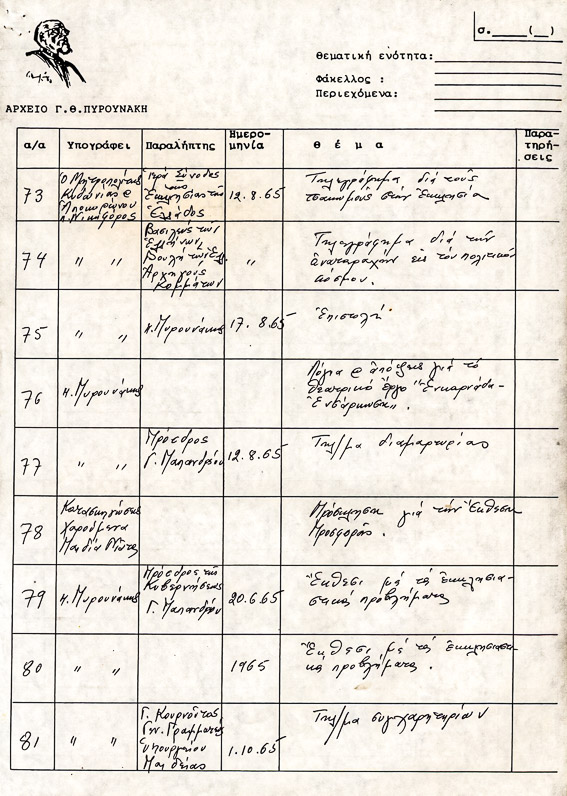 σ.____(__)
θεματική ενότητα:
Φάκελλος :
Περιεχόμενα:
ΑΡΧΕΙΟ Γ.Θ.ΠΥΡΟΥΝΑΚΗ
α/α Υπογράφει Παραλήπτης Ημερο-μηνία θ έ μ α Παρα-τηρή-σεις
73 Ὁ Μητροπολίτης Κυδωνίας @ Ἀποκορώνου Νικηφόρος
Ἱερά Σύνοδος τῆς Ἐκκλησίας τῆς Ἑλλάδος
12.8.65
Τηλεγράφημα διά τούς
στήν Ἐκκλησία
74 " "
Βασιλεύς τῶν Ἑλλήνων, Βουλή τῶν Ἑλ. Ἀρχηγούς Κομμάτων
"
Τηλεγράφημα διά τήν
ἀναταραχήν εἰς τόν πολιτικόν
κόσμον.
75 " " π. Πυρουνάκης 17.8.65 Ἐπιστολή
76 π. Πυρουνάκης
Λόγια @ ἀπόψεις γιά τό
θεατρικό ἔργο "Ἐνκαρνάδα-
Ἐνσάρκωση".
77 " "
Πρόεδρος
Γ. Παπανδρέου 12.8.65 Τηλ/μα διαμαρτυρίας
78 Κατασκηνώσεις
Χαρούμενα
Παιδιά
Πρόσκληση γιά τήν Ἔκθεση
Προσφορᾶς.
79 π. Πυρουνάκης
Πρόεδρος τῆς
Κυβερνήσεως
Γ. Παπανδρέου 20.6.65
Ἔκθεσι μέ τά ἐκκλησια-
στικά προβλήματα
80 " " 1965
Ἔκθεσι μέ τά ἐκκλησιαστι-
κά προβλήματα.
81 " "
Γ. Κουρνοῦτος
Γεν. Γραμματεύς
Ὑπουργείου
Παιδείας
1.10.65
Τηλ/μα συγχαρητηρίων